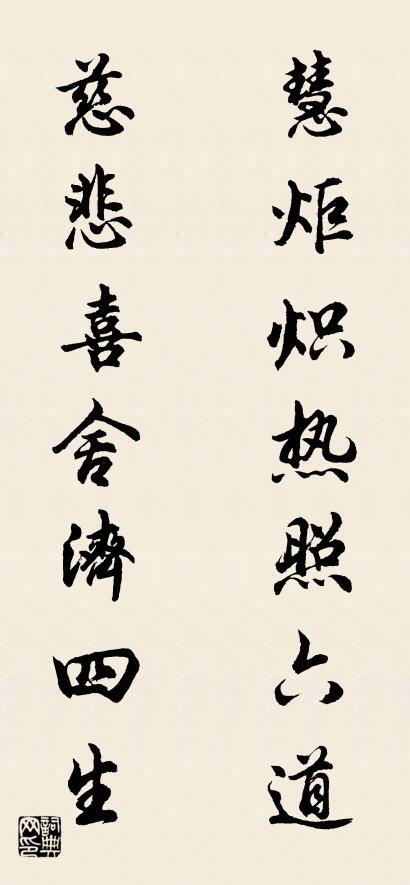 慧炬炽热照六道
慈悲喜舍濟四生
詞典网印